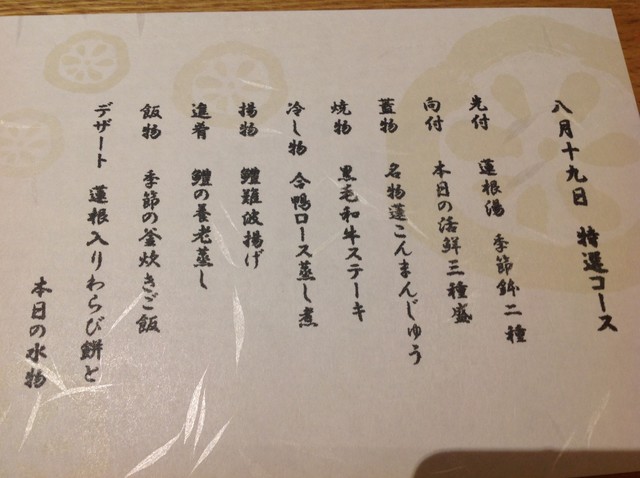 八月十九日 特選コース
先付 蓮根湯 季節鉢二種
向付 本日の活鮮三種盛
蓋物 名物蓮こんまんじゅう
焼物 黒毛和牛ステーキ
冷し物 合鴨ロース蒸し煮
揚物 鱧難波揚げ
進肴 鱧の養老蒸し
飯物 季節の釜炊きご飯
デザート 蓮根入りわらび餅と
本日の水物